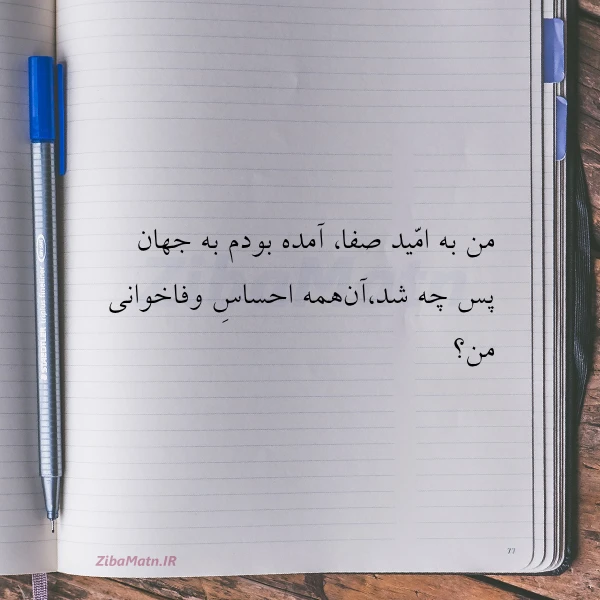 من به امّید صفا، آمده بودم به جهان
پس چه شد،آن‌همه احساسِ وفاخوانی
من؟
77
ZibaMatn.IR